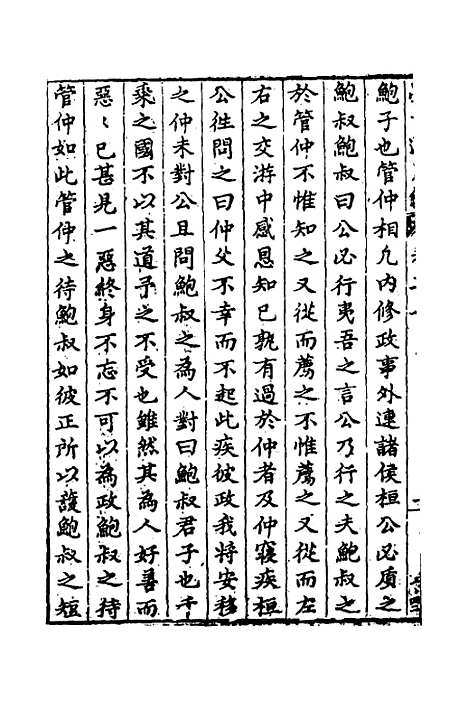 鮑子也管仲相凡内修政事外連諸侯桓公必質之
鮑叔鮑叔曰公必行夷吾之言公乃行之夫鮑叔之
於管仲不惟知之又從而薦之不惟薦之又從而左
右之交游中感恩知已孰有過於仲者及仲寢疾桓
公徃問之曰仲父不幸而不起此疾彼政我將安移
之仲未對公且問鮑叔之為人對曰鮑叔君子也千
乗之國不以其道予之不受也雖然其為人好善而
惡〻已甚見一惡終身不忘不可以為政鮑叔之待
管仲如此管仲之待鮑叔如彼正所以護鮑叔之短